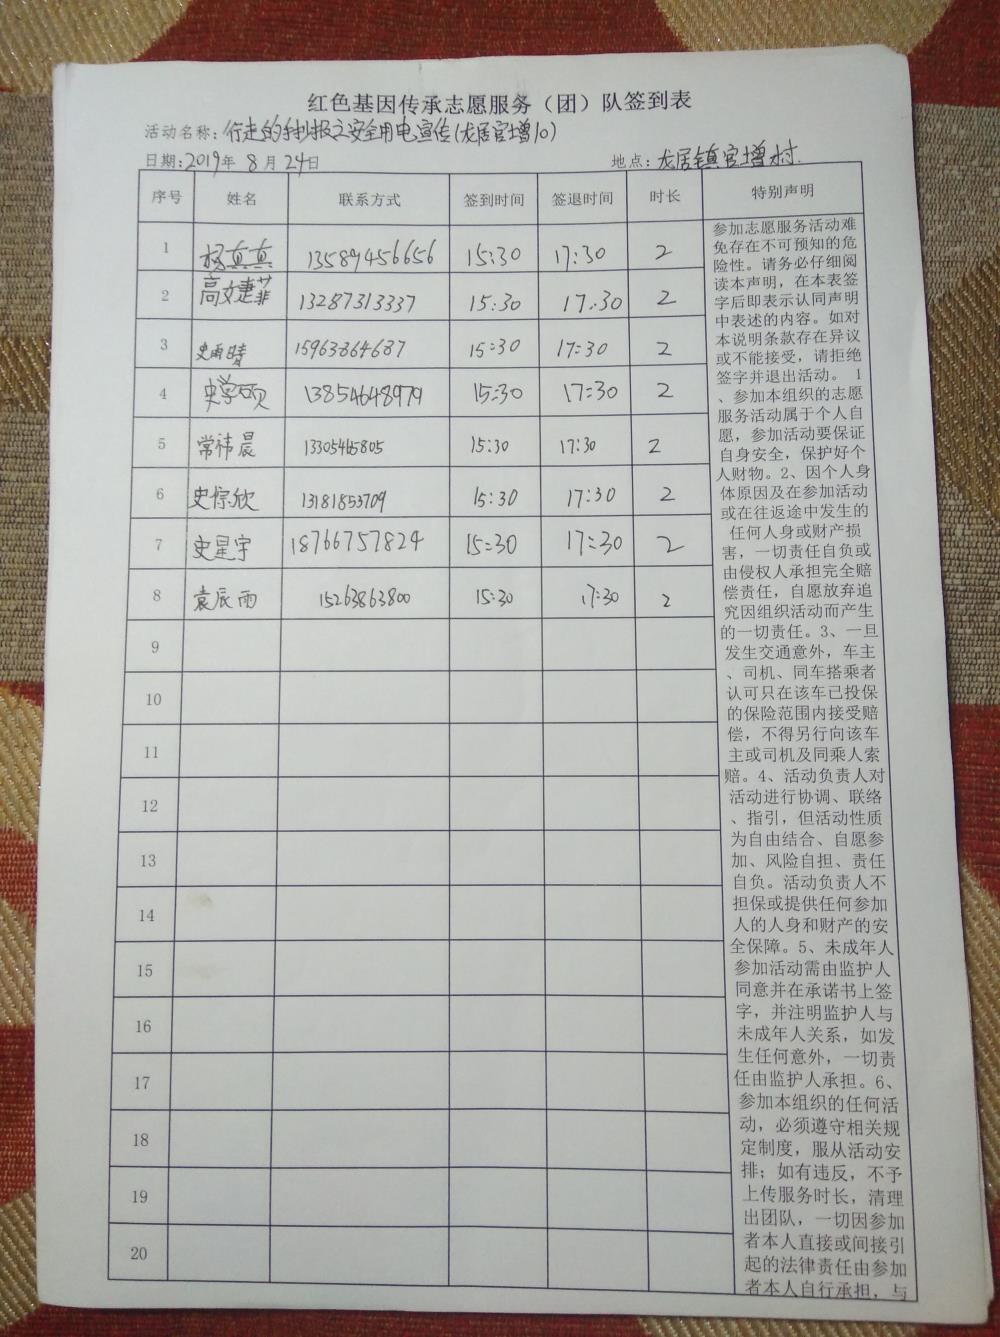 红色基因传承志愿服务（团）队签到表
活动名称：行走的手抄报之安全用电宣传(龙居官增10)
日期：2019年 8月24日 地点：龙居镇官增村.
序号 姓名 联系方式 签到时间 签退时间 时长 特别声明
1 杨真真 13589456656 15:30 17:30 2
2 高文婕菲 13287313337 15:30 17:30 2
3 史雨晴 15963864687 15:30 17:30 2
4 史学硕 13854648979 15:30 17:30 2
5 常祎晨 13305465805 15:30 17:30 2
6 史惊欣 13181853709 15:30 17:30 2
7 史星宇 18766757824 15:30 17:30 2
8 袁辰雨 15263863800 15:30 17:30 2
9
10
11
12
13
14
15
16
17
18
19
20
参加志愿服务活动难
免存在不可预知的危
险性。请务必仔细阅
读本声明，在本表签
字后即表示认同声明
中表述的内容。如对
本说明条款存在异议
或不能接受，请拒绝
签字并退出活动。 1
、参加本组织的志愿
服务活动属于个人自
愿，参加活动要保证
自身安全，保护好个
人财物。2、因个人身
体原因及在参加活动
或在往返途中发生的
任何人身或财产损
害，一切责任自负或
由侵权人承担完全赔
偿责任，自愿放弃追
究因组织活动而产生
的一切责任。3、一旦
发生交通意外，车主
、司机、同车搭乘者
认可只在该车已投保
的保险范围内接受赔
偿，不得另行向该车
主或司机及同乘人索
赔。4、活动负责人对
活动进行协调、联络
、指引，但活动性质
为自由结合、自愿参
加、风险自担、责任
自负。活动负责人不
担保或提供任何参加
人的人身和财产的安
全保障。5、未成年人
参加活动需由监护人
同意并在承诺书上签
字，并注明监护人与
未成年人关系，如发
生任何意外，一切责
任由监护人承担。6、
参加本组织的任何活
动，必须遵守相关规
定制度，服从活动安
排；如有违反，不予
上传服务时长，清理
出团队，一切因参加
者本人直接或间接引
起的法律责任由参加
者本人自行承担，与